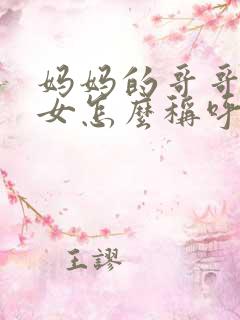 妈妈的哥哥
女怎麼稱呼
王謬